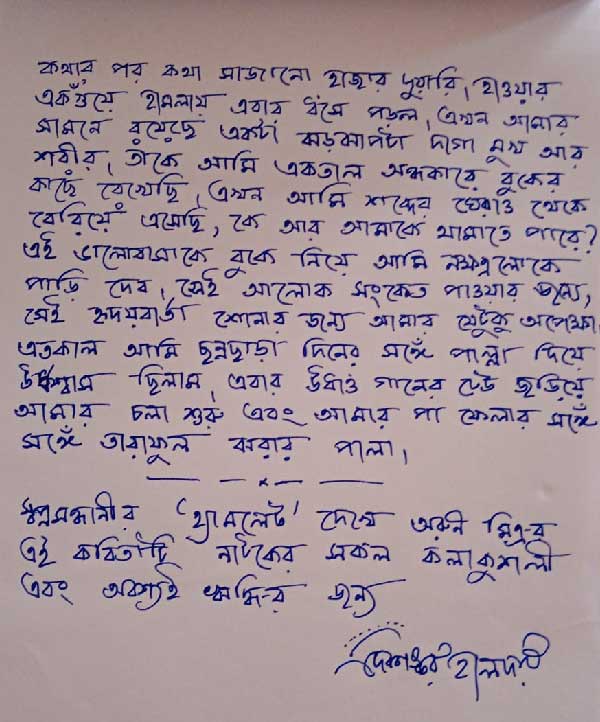 কথার পর কথা সাজানো হাজার দুয়ারি, হাওয়ার
একগুঁয়ে হামলায় এবার ধ্বসে পড়ল, এখন আমার
সামনে রয়েছে একটা ঝড়ঝাপটা দাগা মুখ আর
শরীর, তাঁকে আমি একতাল অন্ধকারে বুকের
কাছে রেখেছি, এখন আমি শব্দের ঘেরাও থেকে
বেরিয়ে এসেছি, কে আর আমাকে থামাতে পারে?
এই ভালোবাসাকে বুকে নিয়ে আমি নক্ষত্রলোকে
পাড়ি দেব, সেই আলোক সংকেত পাওয়ার জন্যে,
সেই হৃদয়বার্তা শোনার জন্য আমার যেটুকু অপেক্ষা
এতকাল আমি ছন্নছাড়া দিনের সঙ্গে পাল্লা দিয়ে
উর্ধ্বশ্বাস ছিলাম, এবার উধাও গানের ঢেউ ছড়িয়ে
আমার চলা শুরু এবং আমার পা ফেলার সঙ্গে
সঙ্গে তারাফুল ঝরার পালা,
স্বপ্নসন্ধানীর 'হ্যামলেট' দেখে অরুণ মিত্র-র
এই কবিতাটি নাটকের সকল কলাকুশলী
এবং অবশ্যই ঋদ্ধি-র জন্য
দেবশঙ্কর হালদার